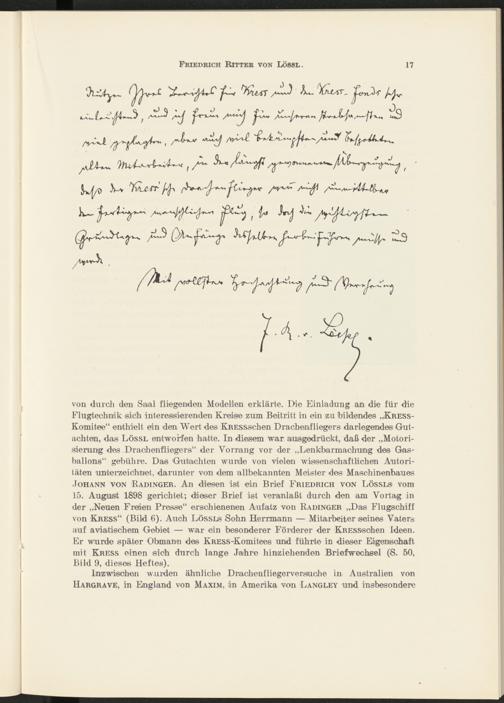 FRIEDRICH RITTER VON LÖSSL. 17
Nutzen Ihres Berichtes für Kress und den Kress-Fonds sehr
einleuchtend, und ich freue mich für unseren strebsamsten und
viel geplagten, aber auch viel bekämpften und bespotteten
alten Mitarbeiter, in der längst gewonnenen Überzeugung,
daß der Kress'sche Drachenflieger wenn nicht unmittelbar
den fertigen menschlichen Flug, so doch die wichtigsten
Grundlagen und Anfänge desselben herbeiführen müsse und
werde.
Mit vollster Hochachtung und Verehrung
F. R. v. Lössl.
von durch den Saal fliegenden Modellen erklärte. Die Einladung an die für die
Flugtechnik sich interessierenden Kreise zum Beitritt in ein zu bildendes „KRESS-
Komitee" enthielt ein den Wert des KRESSschen Drachenfliegers darlegendes Gut-
achten, das LÖSSL entworfen hatte. In diesem war ausgedrückt, daß der „Motori-
sierung des Drachenfliegers" der Vorrang vor der „Lenkbarmachung des Gas-
ballons" gebühre. Das Gutachten wurde von vielen wissenschaftlichen Autori-
täten unterzeichnet, darunter von dem allbekannten Meister des Maschinenbaues
JOHANN VON RADINGER. An diesen ist ein Brief FRIEDRICH VON LÖSSLS vom
15. August 1898 gerichtet; dieser Brief ist veranlaßt durch den am Vortag in
der „Neuen Freien Presse" erschienenen Aufatz von RADINGER „Das Flugschiff
von KRESS" (Bild 6). Auch LÖSSLS Sohn Herrmann — Mitarbeiter seines Vaters
auf aviatischem Gebiet — war ein besonderer Förderer der KRESSschen Ideen.
Er wurde später Obmann des KRESS-Komitees und führte in dieser Eigenschaft
mit KRESS einen sich durch lange Jahre hinziehenden Briefwechsel (S. 50,
Bild 9, dieses Heftes).
Inzwischen wurden ähnliche Drachenfliegerversuche in Australien von
HARGRAVE, in England von MAXIM, in Amerika von LANGLEY und insbesondere